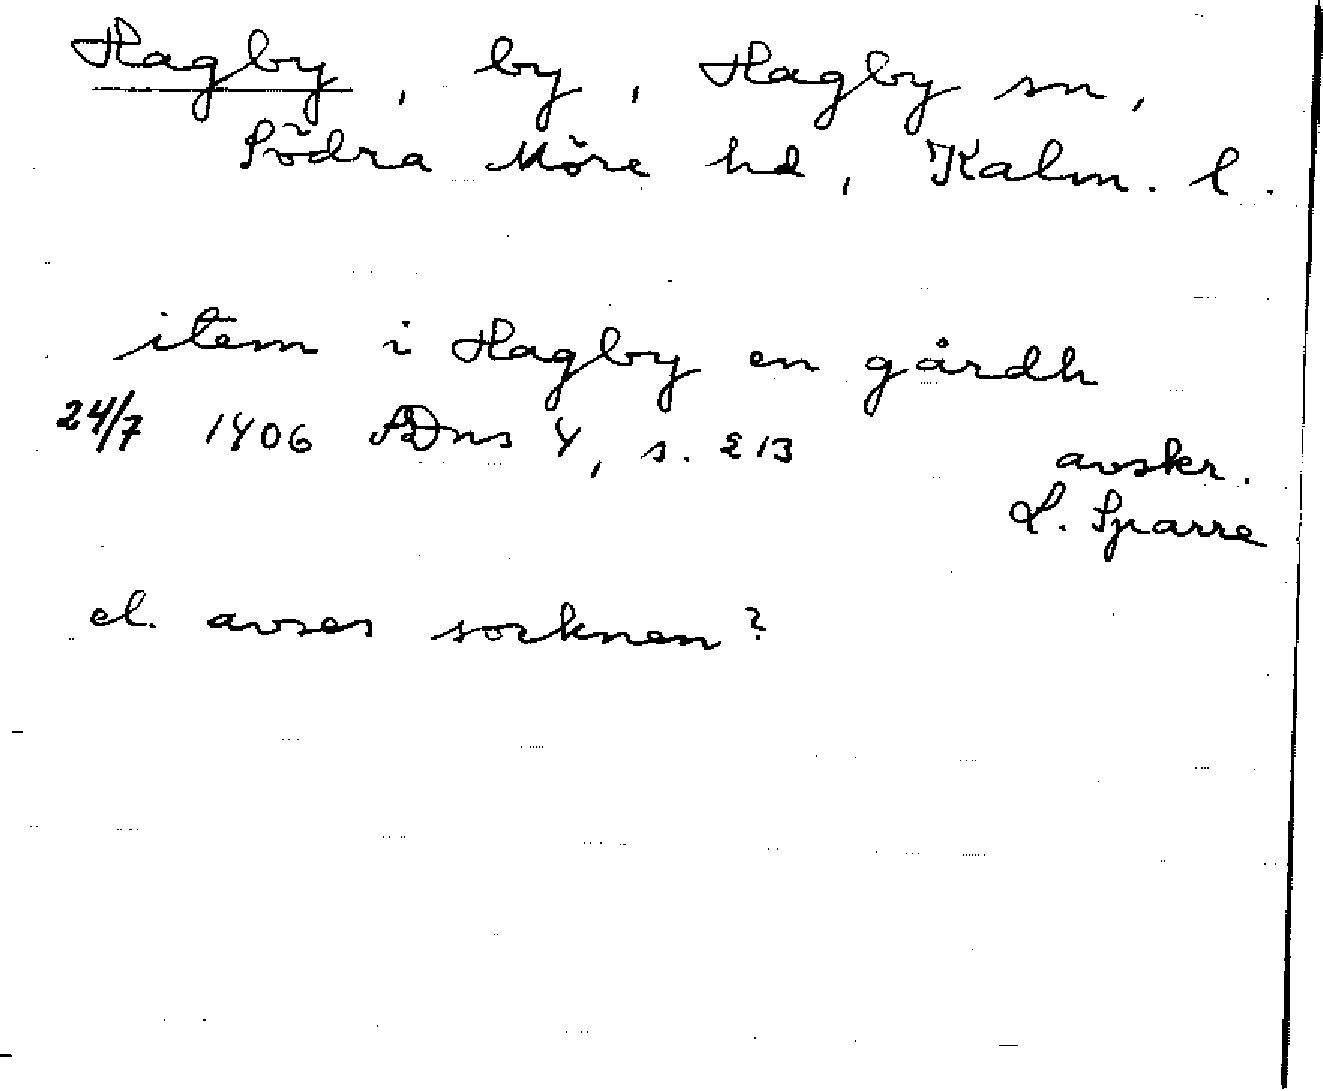 Hagby, by, Hagby sn,
Södra Möre hd, Kalm. l.
item i Hagby en gårdh
24/7 1406 SDns 4, s. 213
avskr.
L. Sparre
el. avses socknen?